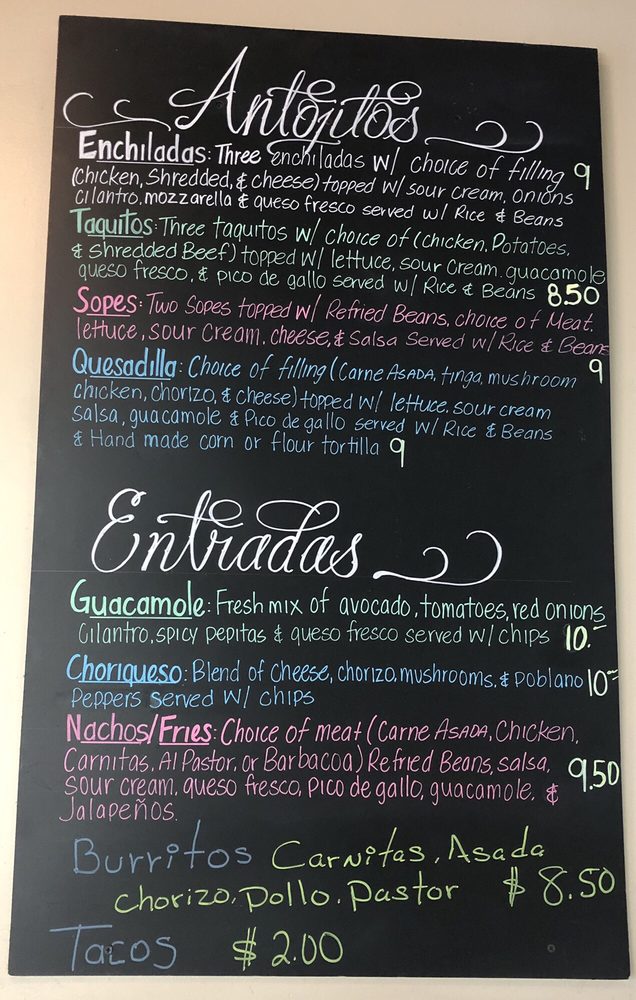 Antojitos
Enchiladas: Three enchiladas w/ choice of filling 9
(chicken, Shredded, & cheese) topped w/ sour cream, onions
cilantro, mozzarella & queso fresco served w/ Rice & Beans
Taquitos: Three taquitos w/ choice of (chicken, Potatoes,
& Shredded Beef) topped w/ lettuce, sour cream, guacamole
queso fresco, & pico de gallo served w/ Rice & Beans 8.50
Sopes: Two Sopes topped w/ Refried Beans, choice of Meat,
lettuce, sour cream, cheese, & Salsa Served w/ Rice & Beans
9
Quesadilla: Choice of filling (Carne Asada, tinga, mushroom
chicken, chorizo, & cheese) topped w/ lettuce, sour cream
salsa, guacamole & Pico de gallo served w/ Rice & Beans
& Hand made corn or flour tortilla 9
Entradas
Guacamole: Fresh mix of avocado, tomatoes, red onions,
Cilantro, spicy pepitas & queso fresco served w/ chips 10.-
Choriqueso: Blend of cheese, chorizo, mushrooms, & Poblano 10-
Peppers served w/ chips
Nachos/Fries: Choice of meat (Carne Asada, Chicken,
Carnitas, Al Pastor, or Barbacoa) Refried Beans, salsa, 9.50
sour cream, queso fresco, pico de gallo, guacamole, &
Jalapeños.
Burritos Carnitas, Asada
chorizo, pollo, pastor $ 8.50
Tacos $ 2.00